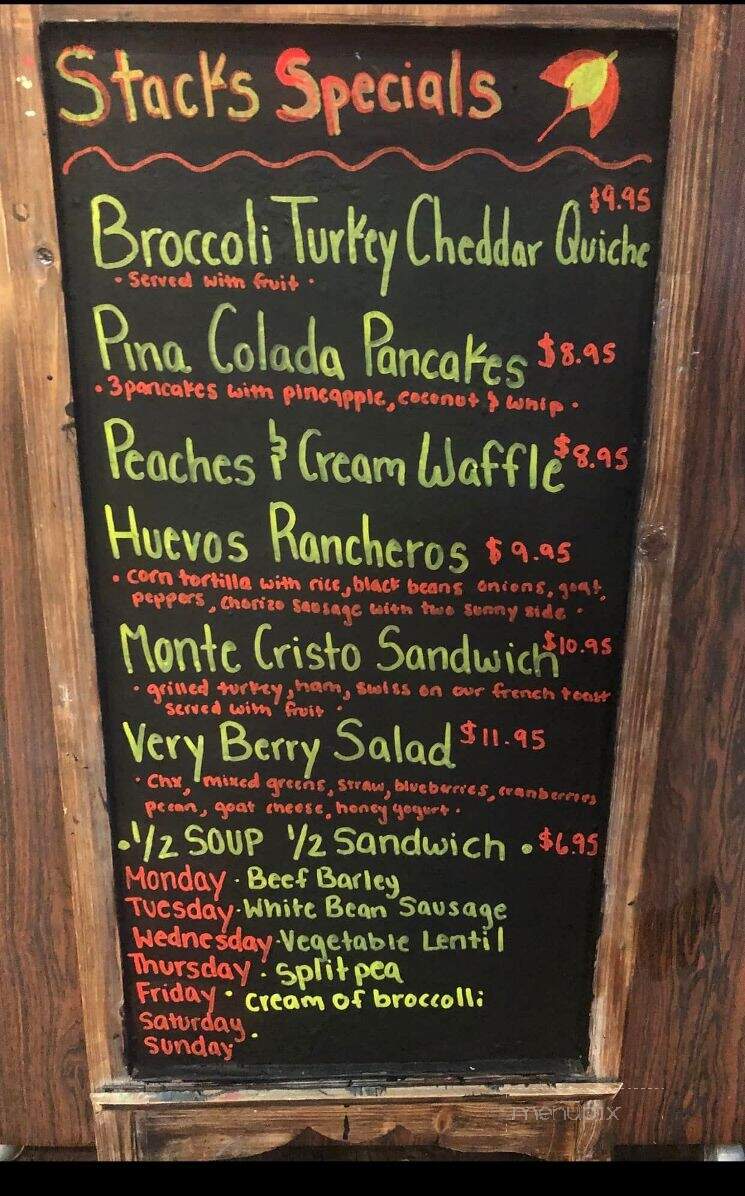 Stacks Specials
$9.95
Broccoli Turkey Cheddar Quiche
• Served with fruit •
Pina Colada Pancakes $8.95
• 3 pancakes with pineapple, coconut & whip •
Peaches & Cream Waffle $8.95
Huevos Rancheros $9.95
• corn tortilla with rice, black beans onions, goat,
peppers, chorizo sausage with two sunny side •
Monte Cristo Sandwich $10.95
• grilled turkey, ham, swiss on our french toast
served with fruit •
Very Berry Salad $11.95
• Chx, mixed greens, straw, blueberries, cranberries
pecan, goat cheese, honey yogurt •
• 1/2 SOUP 1/2 Sandwich • $6.95
Monday • Beef Barley
Tuesday • White Bean Sausage
Wednesday • Vegetable Lentil
Thursday • split pea
Friday • cream of broccolli
Saturday •
Sunday
menupix